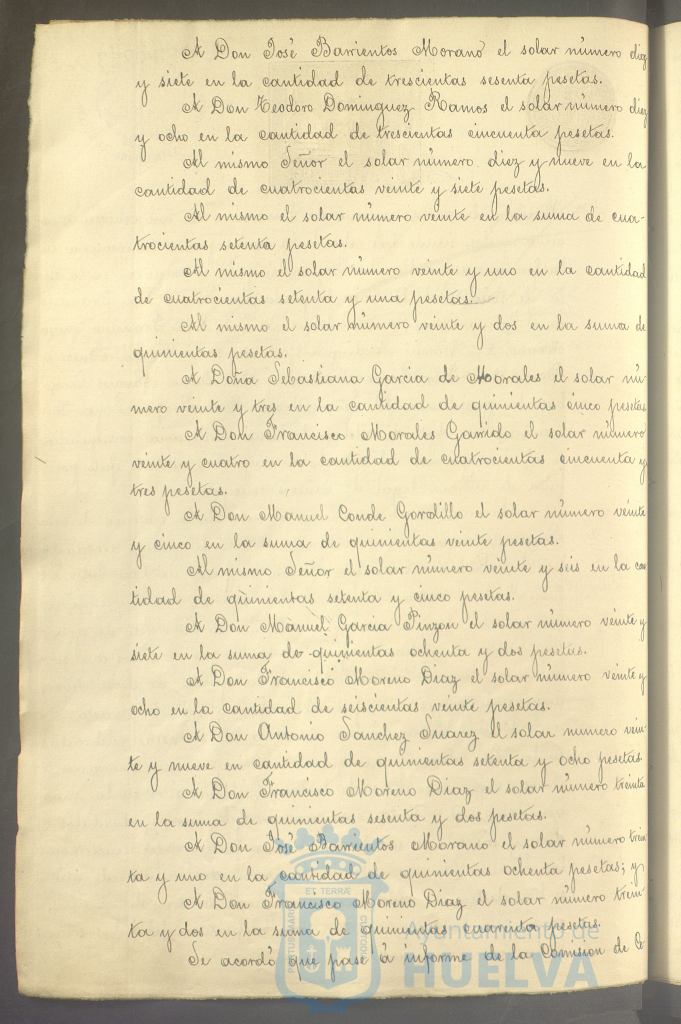 A Don José Barrientos Morano el solar número diez
y siete en la cantidad de trescientas sesenta pesetas.
A Don Teodoro Dominguez Ramos el solar número diez
y ocho en la cantidad de trescientas cincuenta pesetas.
Al mismo Señor el solar número diez y nueve en la
cantidad de cuatrocientas veinte y siete pesetas.
Al mismo el solar número veinte en la suma de cua-
trocientas setenta pesetas.
Al mismo el solar número veinte y uno en la cantidad
de cuatrocientas setenta y una pesetas.
Al mismo el solar número veinte y dos en la suma de
quinientas pesetas.
A Doña Sebastiana Garcia de Morales el solar nú-
mero veinte y tres en la cantidad de quinientas cinco pesetas
A Don Francisco Morales Garrido el solar número
veinte y cuatro en la cantidad de cuatrocientas cincuenta y
tres pesetas.
A Don Manuel Conde Gordillo el solar número veinte
y cinco en la suma de quinientas veinte pesetas.
Al mismo Señor el solar número veinte y seis en la can
tidad de quinientas setenta y cinco pesetas.
A Don Manuel Garcia Pinzon el solar número veinte y
siete en la suma de quinientas ochenta y dos pesetas.
A Don Francisco Moreno Diaz el solar número veinte y
ocho en la cantidad de seiscientas veinte pesetas.
A Don Antonio Sanchez Suarez el solar numero vein-
te y nueve en cantidad de quinientas setenta y ocho pesetas
A Don Francisco Moreno Diaz el solar número treinta
en la suma de quinientas sesenta y dos pesetas.
A Don José Barrientos Morano el solar número trein
ta y uno en la cantidad de quinientas ochenta pesetas; y
A Don Francisco Moreno Diaz el solar número trein-
ta y dos en la suma de quinientas cuarenta pesetas.
Se acordó que pase á informe de la Comision de
ET TERRÆ
PORTUS MARIS
CUSTODIA
Ayuntamiento de
HUELVA